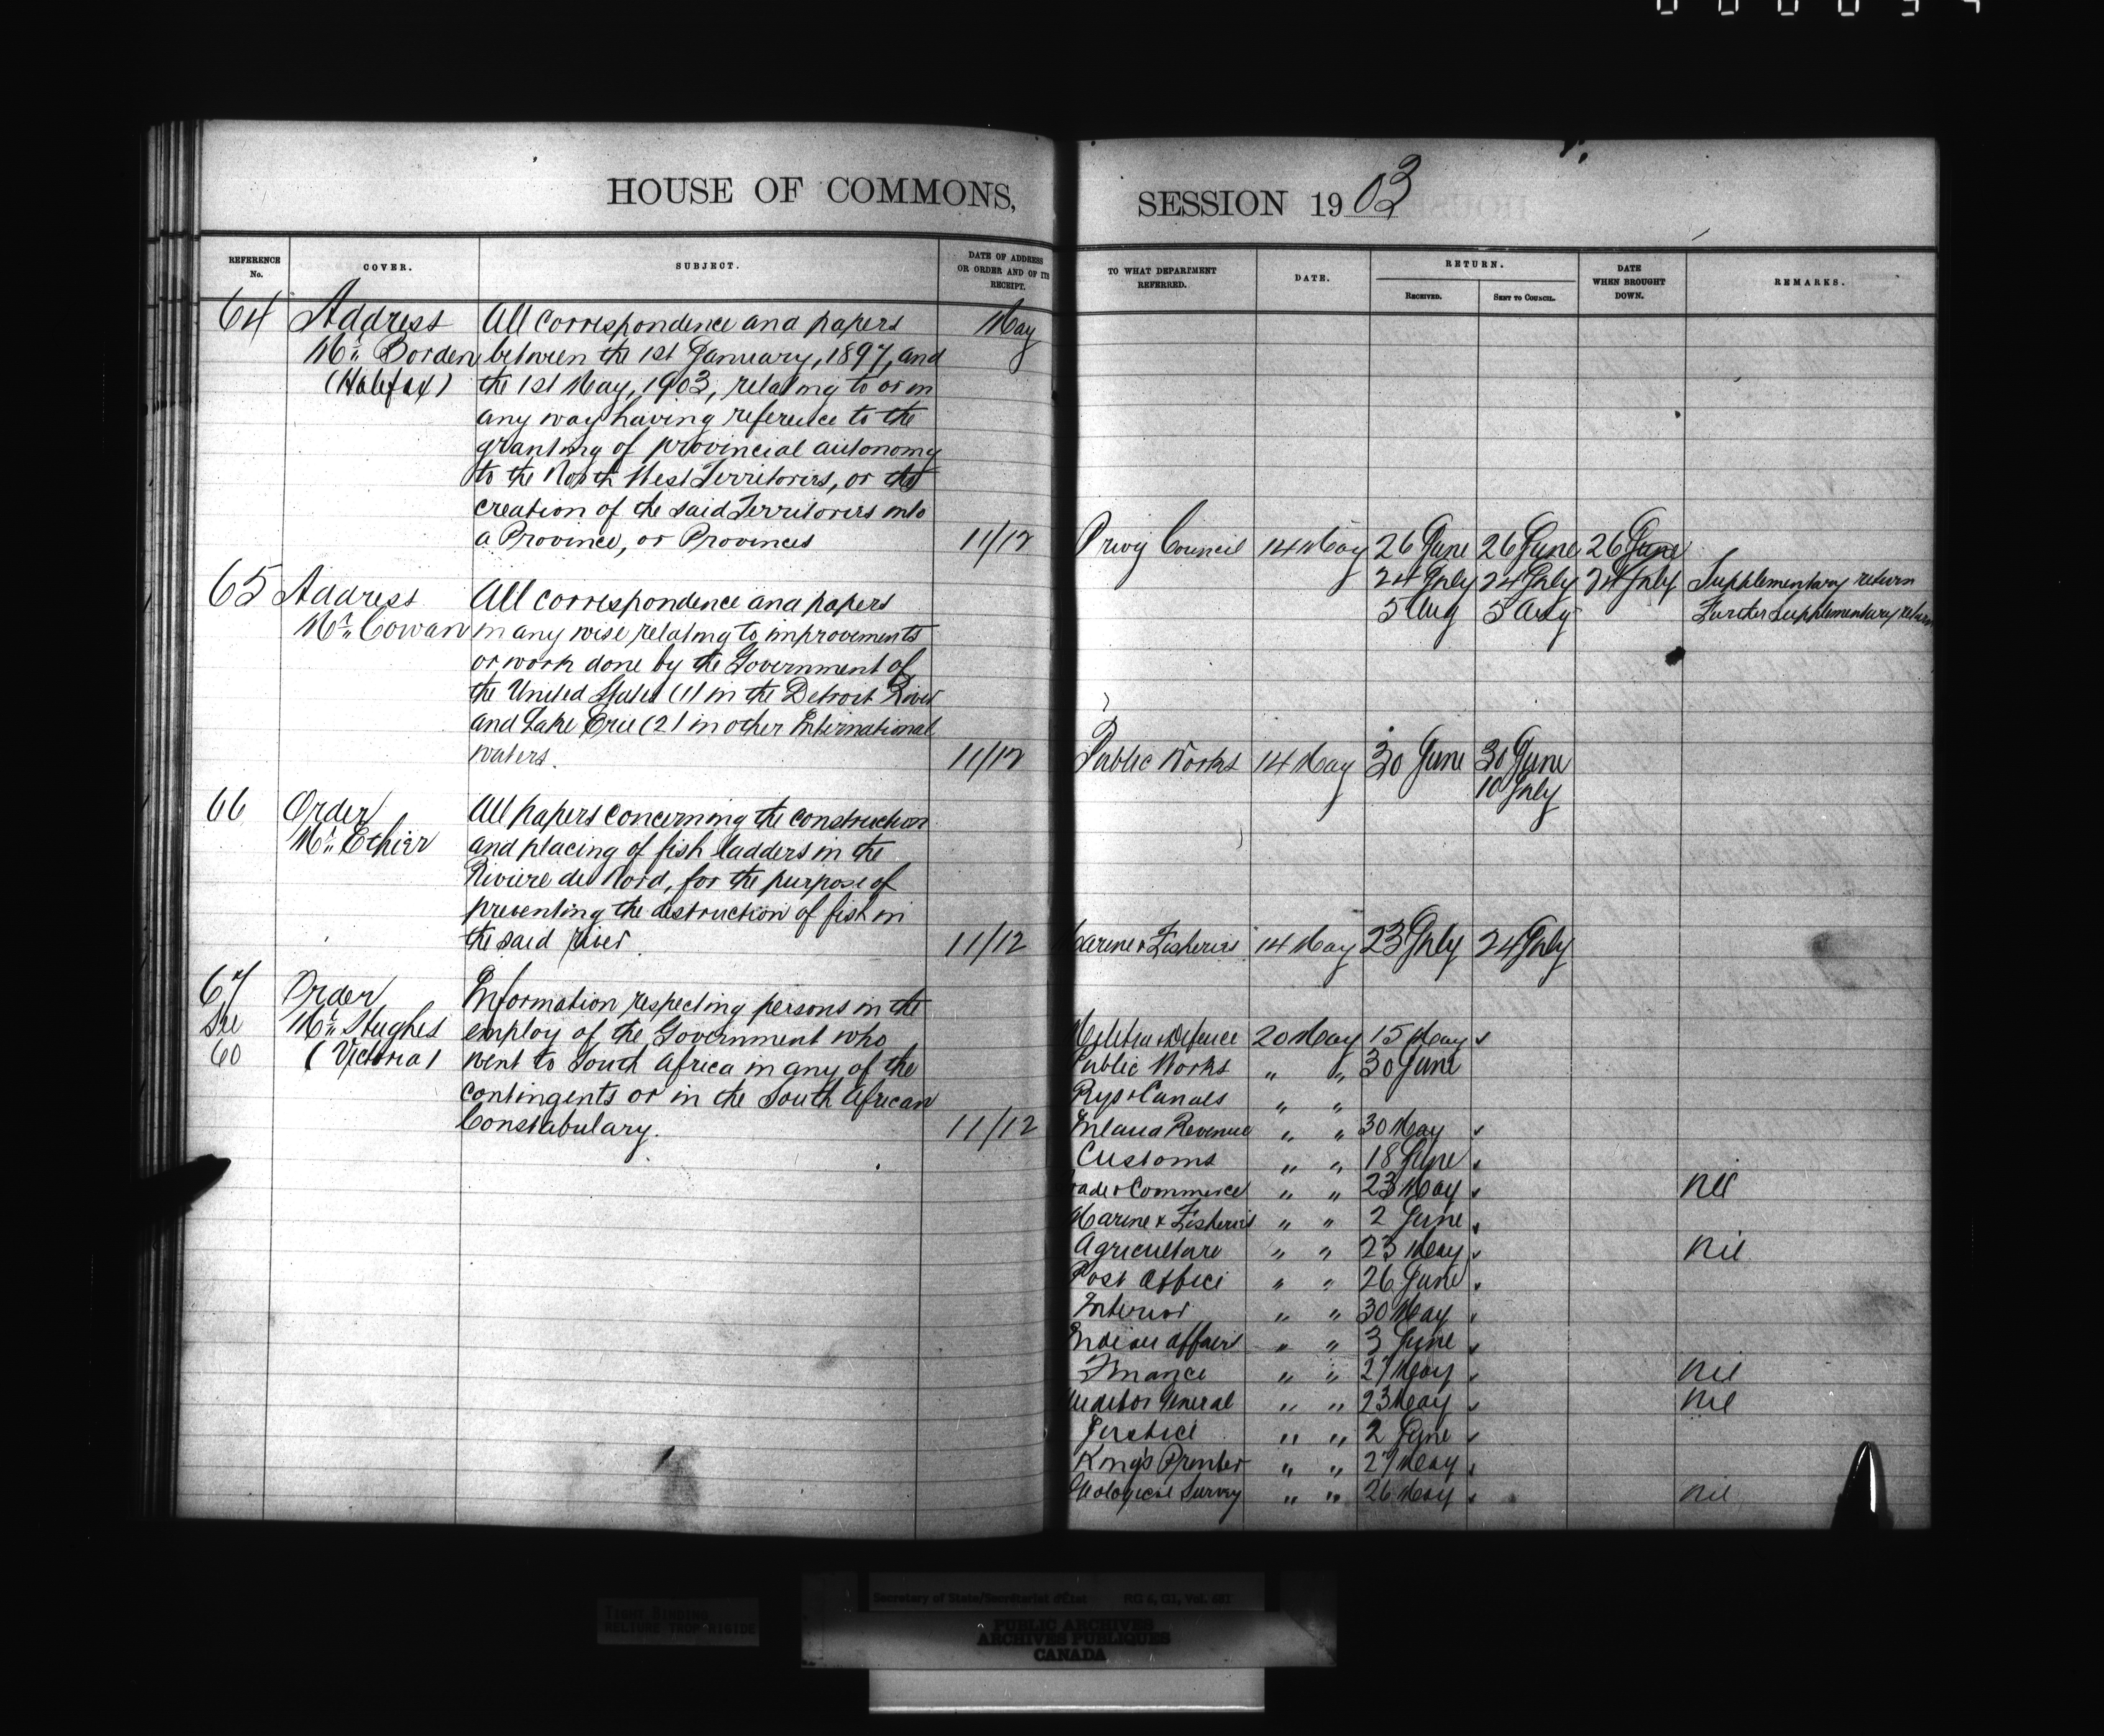 HOUSE OF COMMONS,
REFERENCE No.
COVER.
SUBJECT.
DATE OF ADDRESS OR ORDER AND OF ITS RECEIPT.
64 Address All correspondence and papers May
Mr. Borden between the 1st January, 1897, and
(Halifax) the 1st May, 1903, relating to or in
any way having reference to the
granting of provincial autonomy
to the North West Territories, or the
creation of the said Territories into
a Province, or Provinces 11/12
65 Address All correspondence and papers
Mr. Cowan in any wise relating to improvements
or work done by the Government of
the United States (1) in the Detroit River
and Lake Erie (2) in other International
waters. 11/12
66 Order All papers concerning the construction
Mr. Ethier and placing of fish ladders in the
Rivière du Nord, for the purpose of
preventing the destruction of fish in
the said river 11/12
67 Order Information respecting persons in the
See Mr. Hughes employ of the Government who
60 (Victoria) went to South Africa in any of the
contingents or in the South African
Constabulary. 11/12
SESSION 1903
TO WHAT DEPARTMENT REFERRED.
DATE.
RETURN.
RECEIVED.
SENT TO COUNCIL.
DATE WHEN BROUGHT DOWN.
REMARKS.
Privy Council 14 May 26 June 26 June 26 June
24 July 24 July 24 July Supplementary return
5 Aug 5 Aug Further Supplementary return
Public Works 14 May 30 June 30 June
10 July
Marine & Fisheries 14 May 23 July 24 July
Militia & Defence 20 May 15 May ✓
Public Works " " 30 June
Rys & Canals " "
Inland Revenue " " 30 May ✓
Customs " " 18 June ✓
Trade & Commerce " " 23 May ✓ nil
Marine & Fisheries " " 2 June ✓
Agriculture " " 23 May ✓ nil
Post Office " " 26 June ✓
Interior " " 30 May ✓
Indian Affairs " " 3 June ✓
Finance " " 27 May ✓ nil
Auditor General " " 23 May ✓ nil
Justice " " 2 June ✓
King's Printer " " 27 May ✓
Geological Survey " " 26 May ✓ nil
Tight Binding
RELIURE TROP RIGIDE
Secretary of State/Secrétariat d'État RG 6, G1, Vol. 681
PUBLIC ARCHIVES
ARCHIVES PUBLIQUES
CANADA